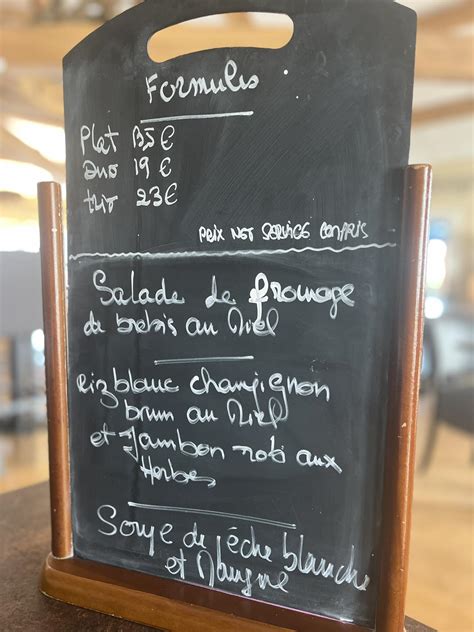 Formules
Plat 13,5 €
Duo 19 €
trio 23€
PRIX NET SERVICE COMPRIS
Salade de fromage
de brebis au Miel
Riz blanc champignon
brun au Miel
et Jambon roti aux
Herbes
Soupe de pêche blanche
et Mangue